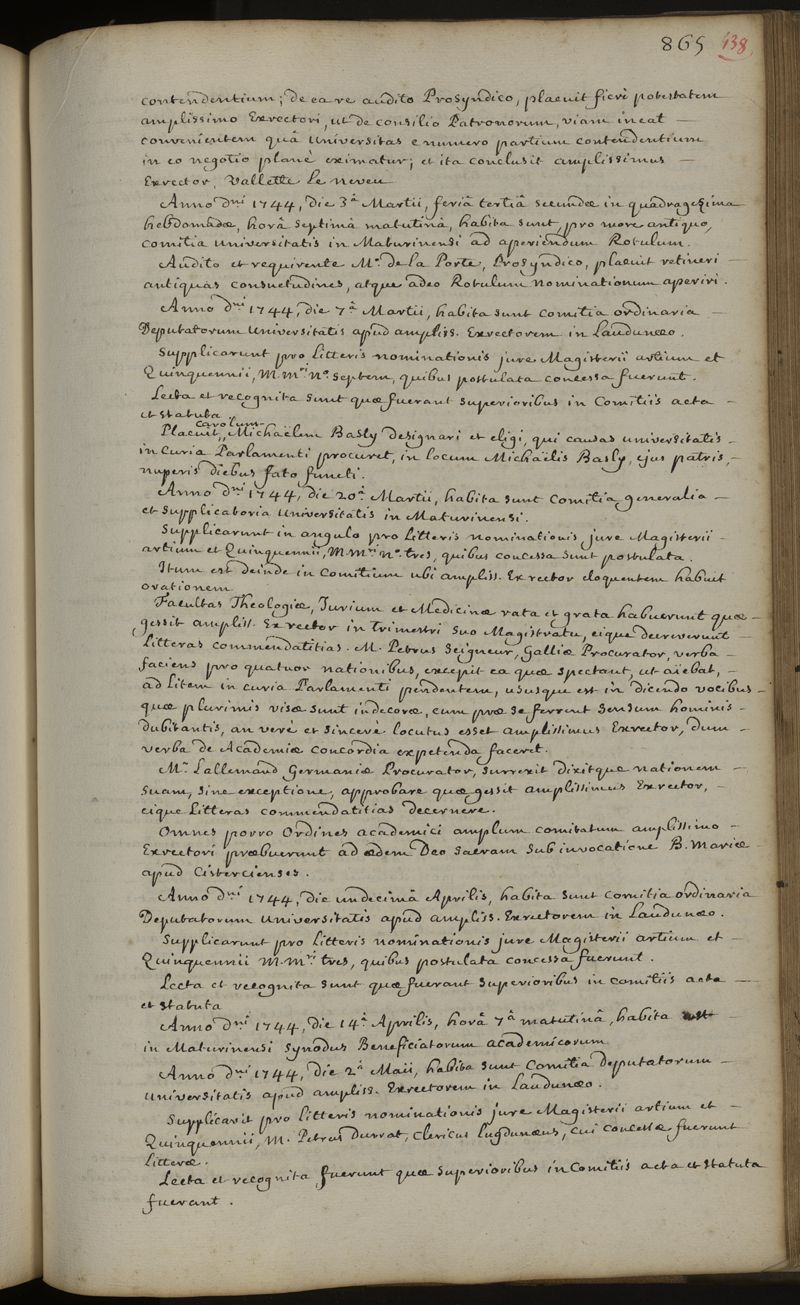 865 138
contendentium; de ea re audito Prosyndico, placuit fieri potestatem
amplissimo Exrectori, ut de consilio Patronorum, viam ineat —
convenientem quâ Universitas e numero partium contendentium
in eo negotio planè eximatur; et ita conclusit amplissimus —
Exrector, Vallette Le Neveu
Anno dni 1744, die 3â Martii, feriâ tertiâ secundæ in quadragesima
hebdomadæ, horâ septimâ matutinâ, habita sunt, pro more antiquo,
comitia Universitatis in Maturinensi ad aperiendum Rotulum.
Audito et requirente Mo. de la Porte, Prosyndico, placuit retineri —
antiquas consuetudines, atque adeo Rotulum nominationum aperiri.
Anno dni 1744, die 7â Martii, habita sunt comitia ordinaria —
Deputatorum Universitatis apud ampliss. Exrectorem in Laudunæo.
Supplicarunt pro Litteris nominationis jure Magisterii artium et
Quinquennii, M.mri no. septem, quibus postulata concessa fuerunt.
Lecta et recognita sunt quæ fuerant superioribus in Comitiis acta —
et statuta
Placuit, Carolum Michaëlem Basly designari et eligi, qui causas universitatis —
in Curia Parlamenti procuret, in locum Michaëlis Basly, ejus patris, —
nuperis diebus fato functi.
Anno dni 1744, die 20â Martii, habita sunt Comitia generalia —
et supplicatoria Universitatis in Maturinensi.
Supplicarunt in angulo pro Litteris nominationis jure Magisterii —
artium et Quinquennii, M.mri no. tres, quibus concessa sunt postulata.
Itum est deinde in Comitium ubi ampliss. Exrector eloquentem habuit
orationem
Facultas Theologiæ, Jurium et Medicinæ rata et grata habuerunt quæ —
gessit ampliss. Exrector in trimestri suo Magistratu, eique decreverunt —
Litteras commendatitias. M. Petrus Seigneur, Galliæ Procurator, verba —
faciens pro quatuor nationibus, excepit ea quæ spectant, ut aiebat, —
ad Litem in curia Parlamenti pendentem, ususque est in dicendo vocibus —
quæ plurimis visæ sunt indecoræ, cum præ se ferrent sensum hominis —
dubitantis, an verè et sincerè locutus esset amplissimus Exrector, dum —
verba de Academiæ concordia expetenda faceret.
Mr. Lallemand Germaniæ Procurator, surrexit dixitque nationem —
suam, sine exceptione, approbare quæ gessit amplissimus Exrector, —
eique Litteras commendatitias decernere.
Omnes porro Ordines academici amplum comitatum amplissimo —
Exrectori præbuerunt ad ædem Deo sacram sub invocatione B. Mariæ —
apud Cistercienses.
Anno dni 1744, die undecimâ Aprilis, habita sunt comitia ordinaria
Deputatorum Universitatis apud ampliss. Exrectorem in Laudunæo.
Supplicarunt pro Litteris nominationis jure Magisterii artium et —
Quinquennii M.mri tres, quibus postulata concessa fuerunt.
Lecta et recognita sunt quæ fuerant superioribus in comitiis acta —
et statuta
Anno dni 1744, die 14â Aprilis, horâ 7â matutinâ, habita est
in Maturinensi Synodus Beneficiatorum academicorum
Anno dni 1744, die 2â Maii, habita sunt Comitia Deputatorum —
Universitatis apud ampliss. Exrectorem in Laudunæo.
Supplicavit pro Litteris nominationis jure Magisterii artium et —
Quinquennii, M. Petrus Durrat, clericus Lugdunæus, cui concessæ fuerunt
Litteræ.
Lecta et recognita fuerunt quæ superioribus in Comitiis acta et statuta
fuerant.